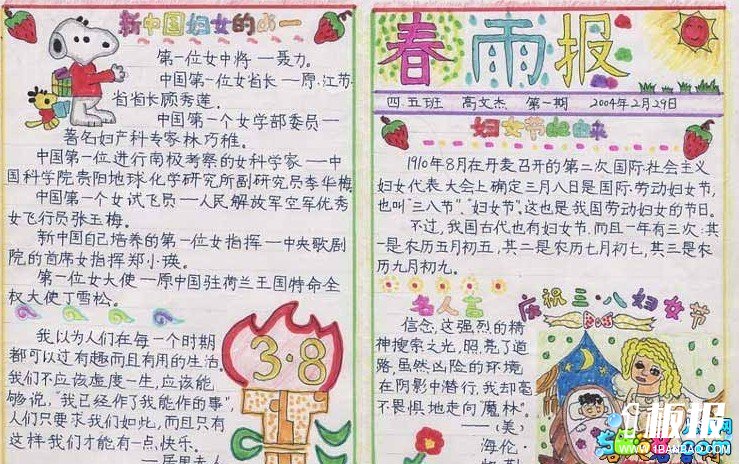 新中国妇女的第一
第一位女中将——聂力。
中国第一位女省长——原·江苏
省省长顾秀莲。
中国第一个女学部委员—
著名妇产科专家林巧稚。
中国第一位进行南极考察的女科学家——中
国科学院贵阳地球化学研究所副研究员李华梅
中国第一个女试飞员——人民解放军空军优秀
女飞行员张玉梅。
新中国自己培养的第一位女指挥——中央歌剧
院的首席女指挥郑小瑛。
第一位女大使——原中国驻荷兰王国特命全
权大使丁雪松。
我以为人们在每一个时期
都可以过有趣而且有用的生活。
我们不应该虚度一生,应该能
够说,"我已经作了我能作的事",
人们只要求我们如此,而且只有
这样我们才能有一点快乐。
——居里夫人
3·8
春雨报
四.五班 高文杰 第一期 2004年2月29日
妇女节的由来
1910年8月在丹麦召开的第二次国际社会主义
妇女代表大会上确定三月八日是国际劳动妇女节,
也叫"三八节""妇女节"。这也是我国劳动妇女的节日。
不过,我国古代也有妇女节,而且一年有三次:其
一是农历五月初五,其二是农历七月初七,其三是农
历九月初九。
名人言
信念,这强烈的精
神搜索之光,照亮了道
路,虽然凶险的环境
在阴影中潜行,我却毫
不畏惧地走向魔林"。
——(美)
海伦·
庆祝三·八妇女节
板报
WWW.1BANBAO.COM